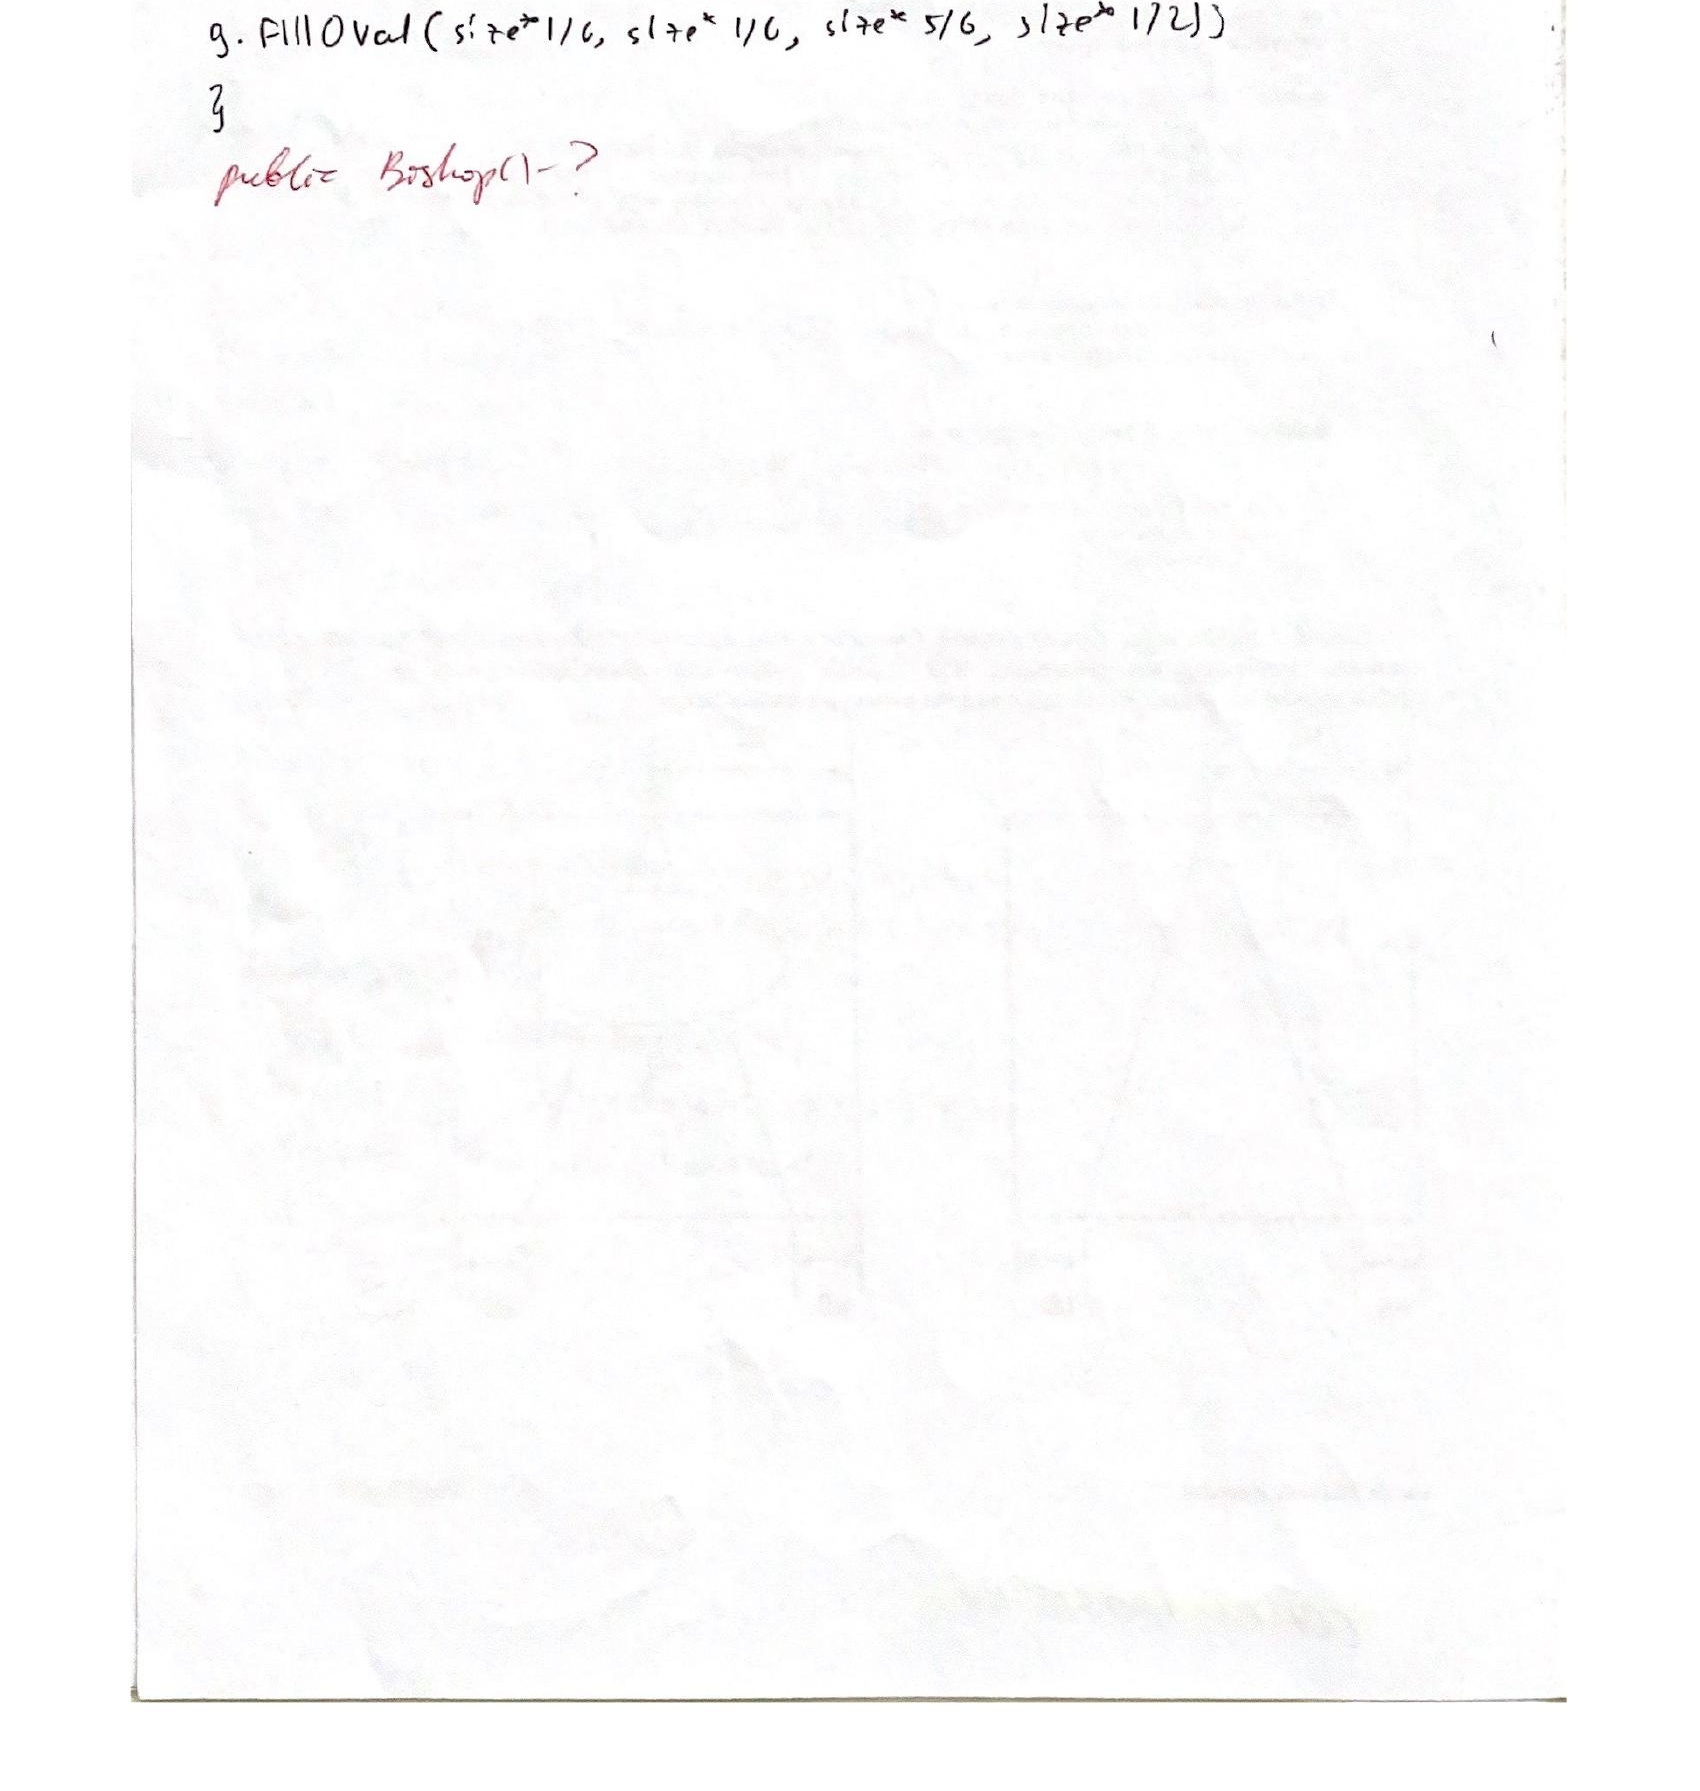 g. fillOval (size*1/6, size* 1/6, size* 5/6, size* 1/2);
}
public Bishop() - ?